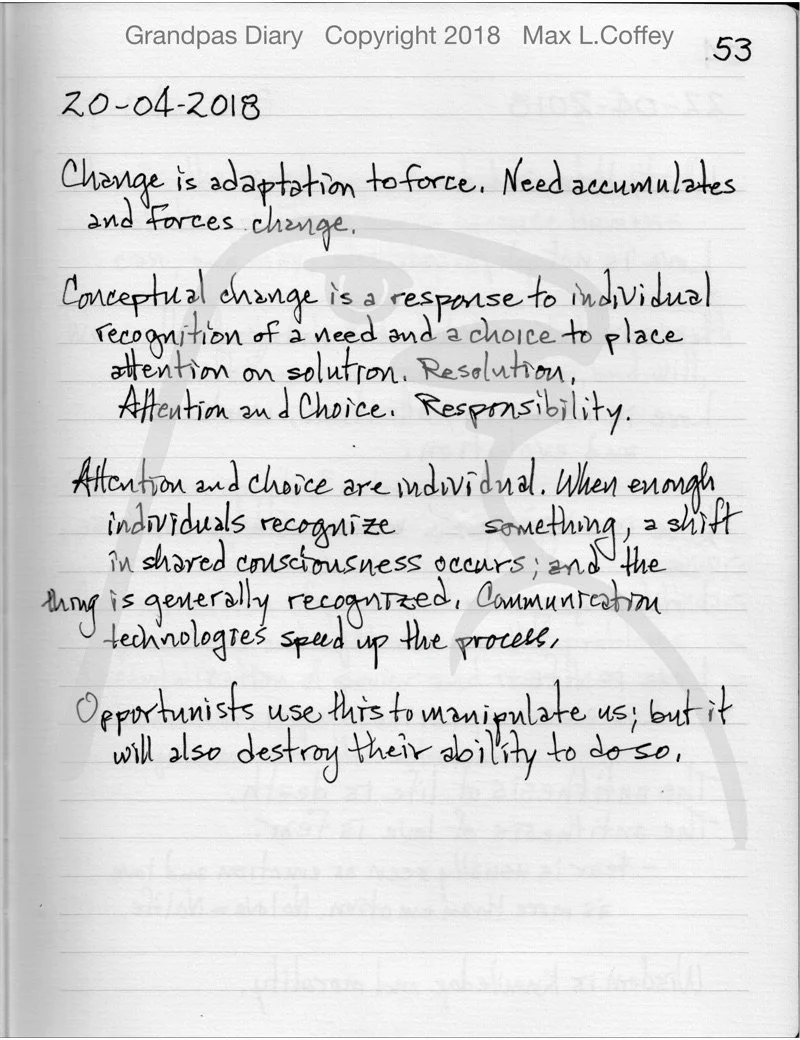 Grandpas Diary Copyright 2018 Max L.Coffey
53
20-04-2018
Change is adaptation to force. Need accumulates
and forces change.
Conceptual change is a response to individual
recognition of a need and a choice to place
attention on solution. Resolution,
Attention and Choice. Responsibility.
Attention and choice are individual. When enough
individuals recognize something, a shift
in shared consciousness occurs; and the
thing is generally recognized. Communication
technologies speed up the process.
Opportunists use this to manipulate us; but it
will also destroy their ability to do so.